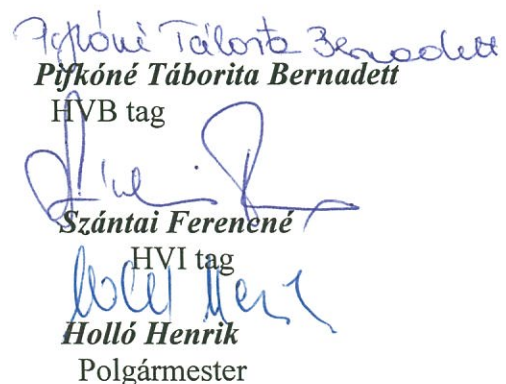 Pifkóné Táborita Bernadett
Pifkóné Táborita Bernadett
HVB tag
Szántai Ferencné
HVI tag
Holló Henrik
Polgármester